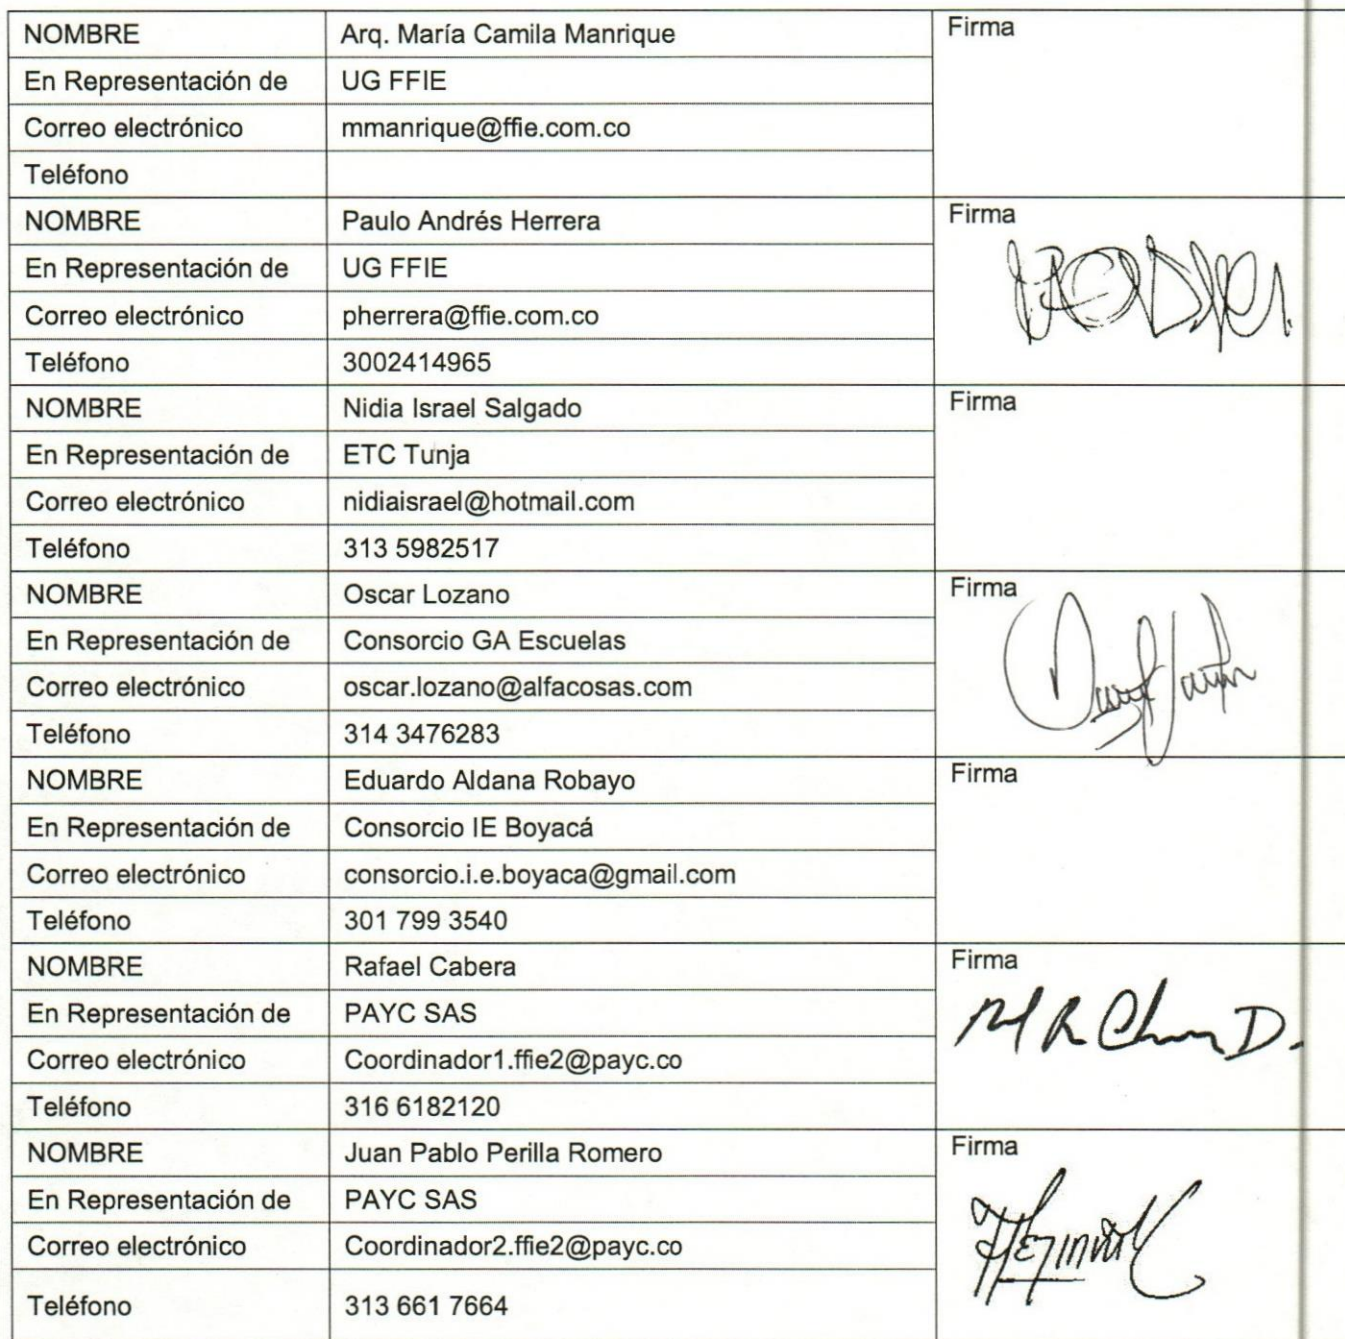 NOMBRE Arq. María Camila Manrique Firma
En Representación de UG FFIE
Correo electrónico mmanrique@ffie.com.co
Teléfono
NOMBRE Paulo Andrés Herrera Firma
En Representación de UG FFIE
Correo electrónico pherrera@ffie.com.co
Teléfono 3002414965
NOMBRE Nidia Israel Salgado Firma
En Representación de ETC Tunja
Correo electrónico nidiaisrael@hotmail.com
Teléfono 313 5982517
NOMBRE Oscar Lozano Firma
En Representación de Consorcio GA Escuelas
Correo electrónico oscar.lozano@alfacosas.com
Teléfono 314 3476283
NOMBRE Eduardo Aldana Robayo Firma
En Representación de Consorcio IE Boyacá
Correo electrónico consorcio.i.e.boyaca@gmail.com
Teléfono 301 799 3540
NOMBRE Rafael Cabera Firma
En Representación de PAYC SAS
Correo electrónico Coordinador1.ffie2@payc.co
Teléfono 316 6182120
NOMBRE Juan Pablo Perilla Romero Firma
En Representación de PAYC SAS
Correo electrónico Coordinador2.ffie2@payc.co
Teléfono 313 661 7664